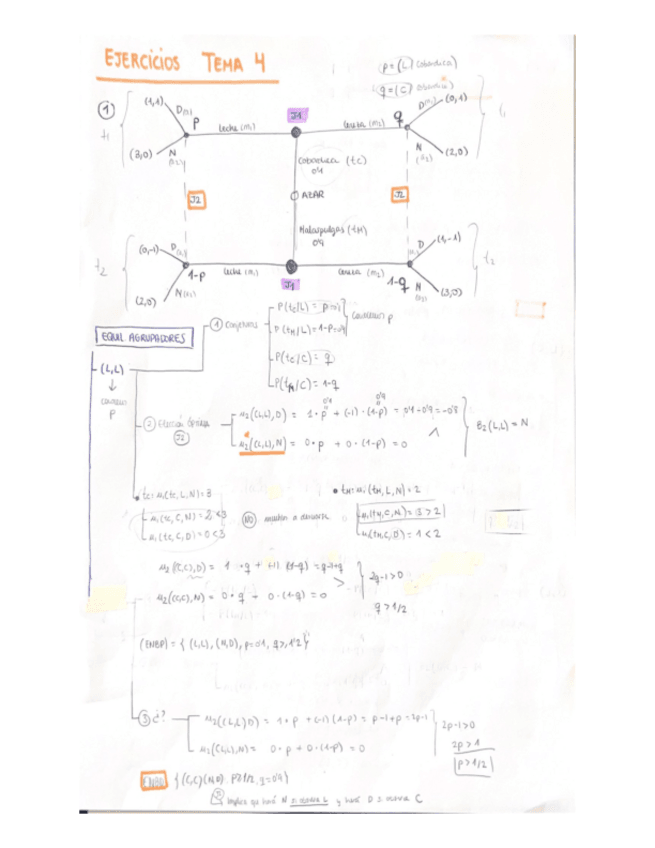 EJERCICIOS TEMA 4
p = (L) cobardica)
q = (C)
1
t1
(1,1)
D(n1)
P
(3,0)
N
(n2)
Leche (m1)
J1
Cerveza (m2)
q
D(n1)
(0,1)
N
(n2)
(2,0)
t1
Cobardica (tC)
0'1
AZAR
J2
J2
Malaspulgas (tM)
0'9
t2
(0,-1)
D(n1)
(2,0)
N(n2)
1-p
Leche (m1)
J1
Cerveza (m2)
1-q
D
(1,-1)
N
(n2)
(3,0)
t2
EQUIL. AGRUPADORES
(L,L)
conozco
p
1 Conjeturas
P(tC/L) = p = 0'1
P(tM/L) = 1-p = 0'9
conozco p
P(tC/C) = q
P(tM/C) = 1-q
2 Elección óptima
J2
u2((L,L),D) = 1·p + (-1)·(1-p) = 0'1-0'9 = -0'8
0'1
0'9
u2((L,L),N) = 0·p + 0·(1-p) = 0
B2(L,L) = N
tC: u1(tC,L,N) = 3
u1(tC,C,N) = 2 < 3
u1(tC,C,D) = 0 < 3
NO
tM: u1(tM,L,N) = 2
u1(tM,C,N) = 3 > 2
u1(tM,C,D) = 1 < 2
u2((C,C),D) = 1·q + (-1)·(1-q) = q-1+q
u2((C,C),N) = 0·q + 0·(1-q) = 0
2q-1>0
q > 1/2
(ENBP) = { (L,L), (N,D), p=0'1, q>1/2 }
3 ¿?
u2((L,L)D) = 1·p + (-1)(1-p) = p-1+p = 2p-1
u2((L,L),N) = 0·p + 0·(1-p) = 0
2p-1>0
2p>1
p>1/2
ENBP { (C,C)(N,D) p>1/2, q=0'9 }
J2 implica que hará N si observa L y hará D si observa C